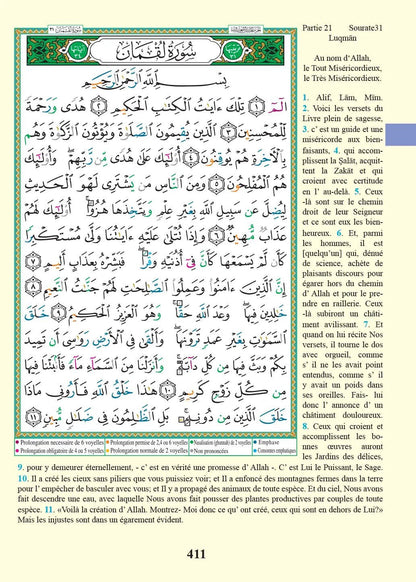 سُورَةُ لُقْمَان
بِسْمِ ٱللَّهِ ٱلرَّحْمَٰنِ ٱلرَّحِيمِ
الٓمٓ ١ تِلْكَ ءَايَٰتُ ٱلْكِتَٰبِ ٱلْحَكِيمِ ٢ هُدًى وَرَحْمَةً
لِّلْمُحْسِنِينَ ٣ ٱلَّذِينَ يُقِيمُونَ ٱلصَّلَوٰةَ وَيُؤْتُونَ ٱلزَّكَوٰةَ وَهُم
بِٱلْءَاخِرَةِ هُمْ يُوقِنُونَ ٤ أُو۟لَٰٓئِكَ عَلَىٰ هُدًى مِّن رَّبِّهِمْ ۖ وَأُو۟لَٰٓئِكَ
هُمُ ٱلْمُفْلِحُونَ ٥ وَمِنَ ٱلنَّاسِ مَن يَشْتَرِى لَهْوَ ٱلْحَدِيثِ
لِيُضِلَّ عَن سَبِيلِ ٱللَّهِ بِغَيْرِ عِلْمٍ وَيَتَّخِذَهَا هُزُوًا ۚ أُو۟لَٰٓئِكَ لَهُمْ
عَذَابٌ مُّهِينٌ ٦ وَإِذَا تُتْلَىٰ عَلَيْهِ ءَايَٰتُنَا وَلَّىٰ مُسْتَكْبِرًا
كَأَن لَّمْ يَسْمَعْهَا كَأَنَّ فِىٓ أُذُنَيْهِ وَقْرًا ۖ فَبَشِّرْهُ بِعَذَابٍ أَلِيمٍ ٧
إِنَّ ٱلَّذِينَ ءَامَنُوا۟ وَعَمِلُوا۟ ٱلصَّٰلِحَٰتِ لَهُمْ جَنَّٰتُ ٱلنَّعِيمِ ٨
خَٰلِدِينَ فِيهَا ۖ وَعْدَ ٱللَّهِ حَقًّا ۚ وَهُوَ ٱلْعَزِيزُ ٱلْحَكِيمُ ٩ خَلَقَ
ٱلسَّمَٰوَٰتِ بِغَيْرِ عَمَدٍ تَرَوْنَهَا ۖ وَأَلْقَىٰ فِى ٱلْأَرْضِ رَوَٰسِىَ أَن تَمِيدَ
بِكُمْ وَبَثَّ فِيهَا مِن كُلِّ دَآبَّةٍ ۚ وَأَنزَلْنَا مِنَ ٱلسَّمَآءِ مَآءً فَأَنۢبَتْنَا فِيهَا
مِن كُلِّ زَوْجٍ كَرِيمٍ ١٠ هَٰذَا خَلْقُ ٱللَّهِ فَأَرُونِى مَاذَا
خَلَقَ ٱلَّذِينَ مِن دُونِهِۦ ۚ بَلِ ٱلظَّٰلِمُونَ فِى ضَلَٰلٍ مُّبِينٍ ١١
Prolongation nécessaire de 6 voyelles Prolongation permise de 2,4 ou 6 voyelles Nasalisation (ghunnah) de 2 voyelles Emphase
Prolongation obligatoire de 4 ou 5 voyelles Prolongation normale de 2 voyelles Non prononcées Consonnes emphatiques
Partie 21 Sourate31
Luqmān
Au nom d'Allah,
le Tout Miséricordieux,
le Très Miséricordieux.
1. Alif, Lām, Mīm.
2. Voici les versets du
Livre plein de sagesse,
3. c' est un guide et une
miséricorde aux bien-
faisants, 4. qui accom-
plissent la Ṣalāt, acquit-
tent la Zakāt et qui
croient avec certitude
en l' au-delà. 5. Ceux
-là sont sur le chemin
droit de leur Seigneur
et ce sont eux les bien-
heureux. 6. Et, parmi
les hommes, il est
[quelqu'un] qui, dénué
de science, achète de
plaisants discours pour
égarer hors du chemin
d' Allah et pour le pre-
ndre en raillerie. Ceux
-là subiront un châti-
ment avilissant. 7. Et
quand on lui récite Nos
versets, il tourne le dos
avec orgueil, comme
s' il ne les avait point
entendus, comme s' il
y avait un poids dans
ses oreilles. Fais- lui
donc l' annonce d' un
châtiment douloureux.
8. Ceux qui croient et
accomplissent les bo-
nnes œuvres auront
les Jardins des délices,
9. pour y demeurer éternellement, - c' est en vérité une promesse d' Allah -. C' est Lui le Puissant, le Sage.
10. Il a créé les cieux sans piliers que vous puissiez voir; et Il a enfoncé des montagnes fermes dans la terre
pour l' empêcher de basculer avec vous; et Il y a propagé des animaux de toute espèce. Et du ciel, Nous avons
fait descendre une eau, avec laquelle Nous avons fait pousser des plantes productives par couples de toute
espèce. 11. «Voilà la création d' Allah. Montrez- Moi donc ce qu' ont créé, ceux qui sont en dehors de Lui?»
Mais les injustes sont dans un égarement évident.
411